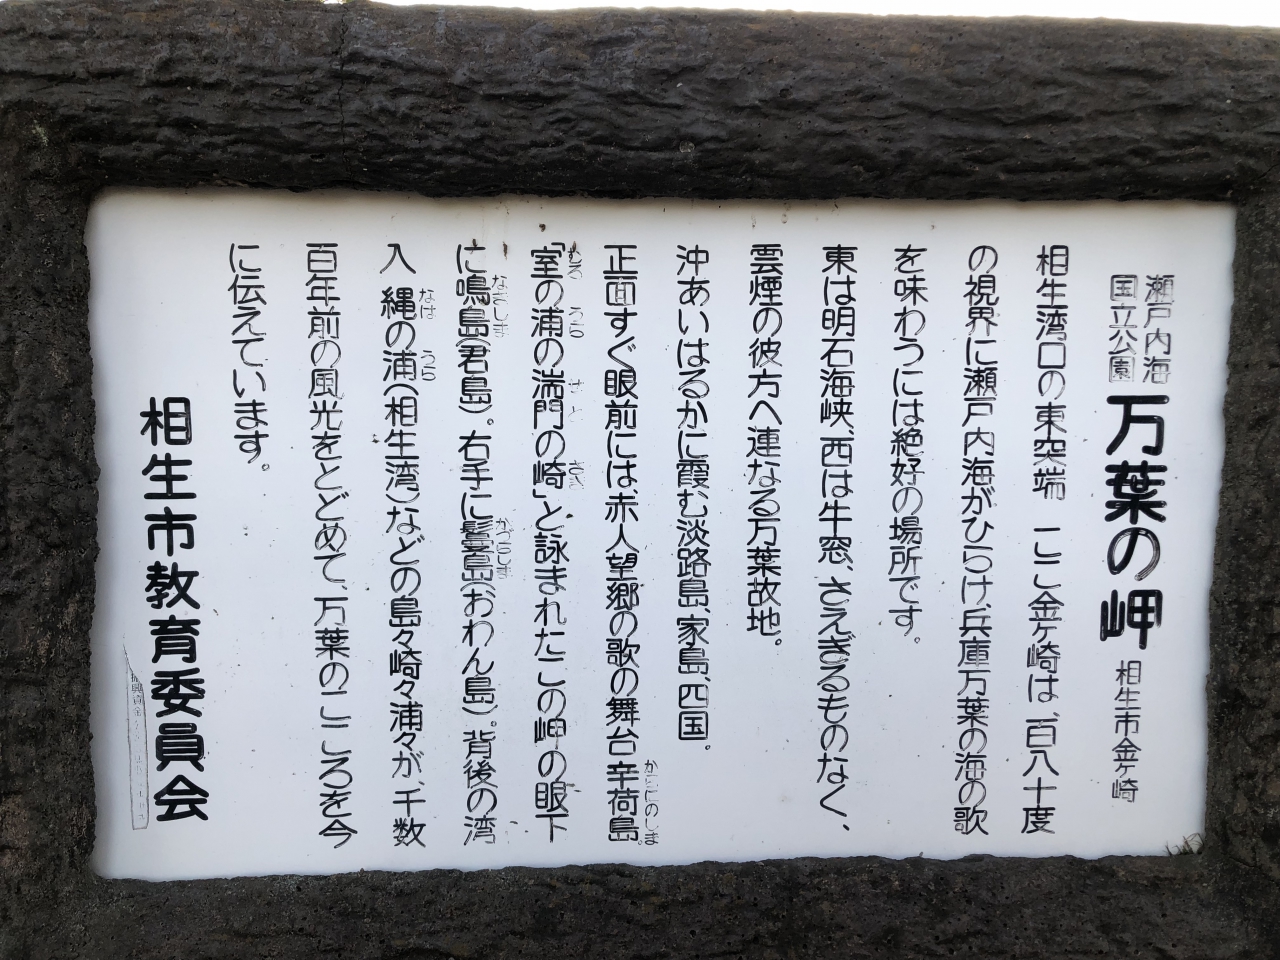 瀬戸内海
国立公園
万葉の岬 相生市金ヶ崎
相生湾口の東突端 ここ金ヶ崎は、百八十度
の視界に瀬戸内海がひらけ、兵庫万葉の海の歌
を味わうには絶好の場所です。
東は明石海峡、西は牛窓、さえぎるものなく、
雲煙の彼方へ連なる万葉故地。
沖あいはるかに霞む淡路島、家島、四国。
正面すぐ眼前には赤人望郷の歌の舞台辛荷島。
からにのしま
「室の浦の湍門の崎」と詠まれたこの岬の眼下
むろ うら せと さき
に鳴島(君島)。右手に鬘島(おわん島)。背後の湾
なきしま かつらしま
入 縄の浦(相生湾)などの島々崎々浦々が、千数
なは うら
百年前の風光をとどめて、万葉のこころを今
に伝えています。
相生市教育委員会